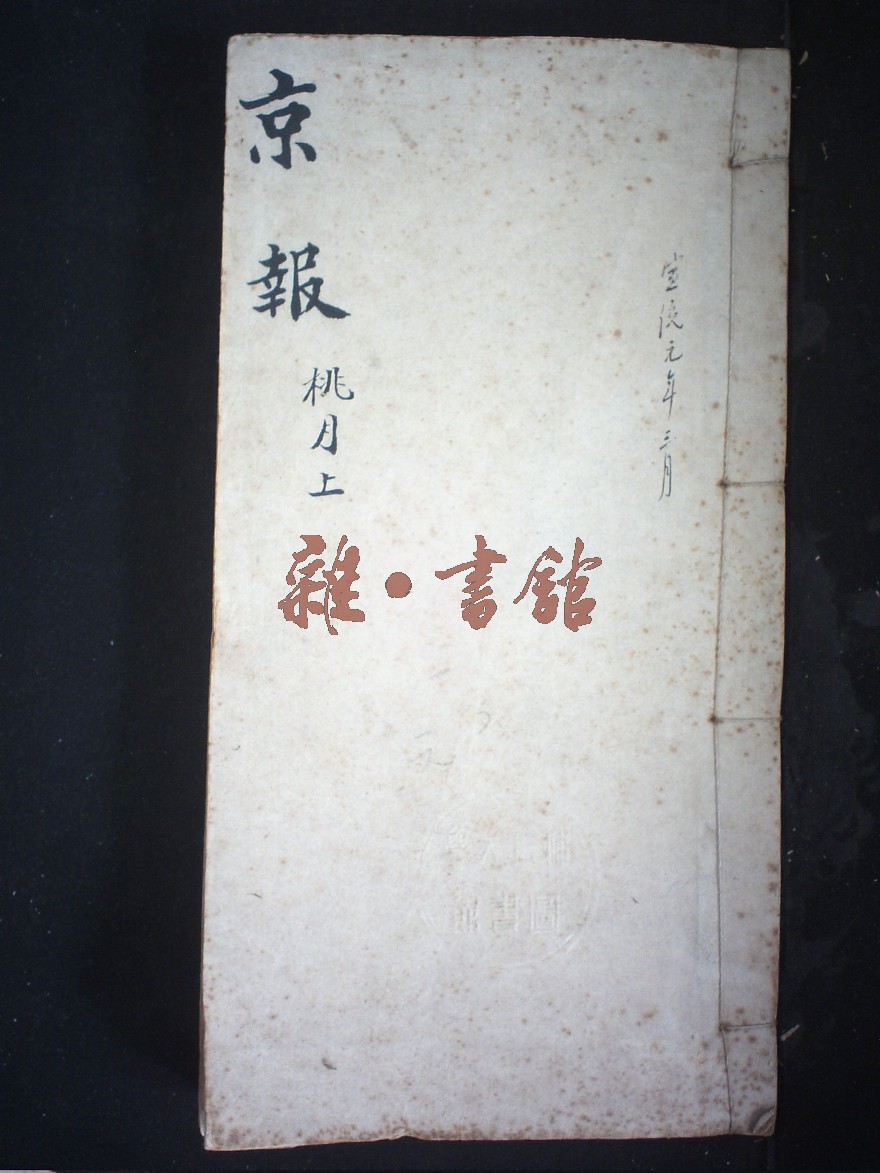 宣統元年三月
京報
桃月上
雜•書館
圖書館